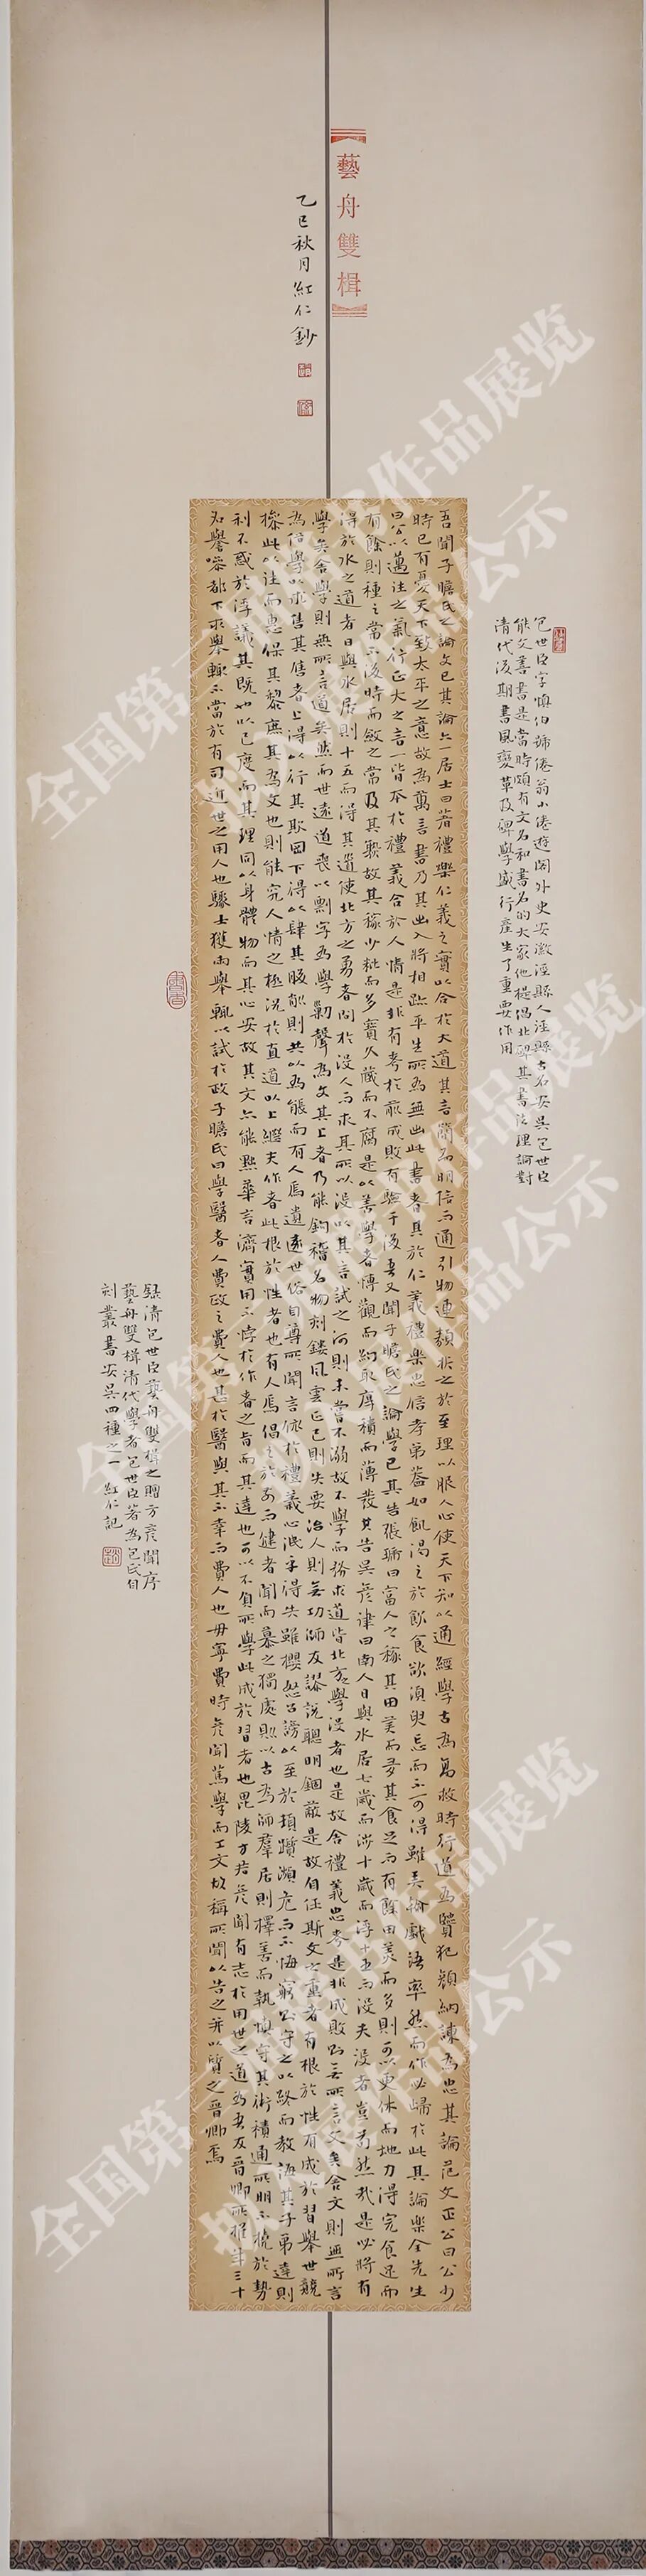 藝舟雙楫
乙巳秋月紅仁鈔
吾聞子瞻氏之論文已其論六一居士曰著禮樂仁義之實以合於大道其言簡而明信而通引物連類折之於至理以服人心使天下知以通經學古為高救時行道為賢犯顏納諫為忠其論范文正公曰公少
時已有憂天下致太平之意故為萬言書乃其出入將相勳平生所為無出此書者其於仁義禮樂忠信孝弟蓋如飢渴之於飲食欲須臾忘而不可得雖弄翰戲語率然而作必歸於此其論樂全先生
曰公以邁往之氣行正大之言一皆本於禮義合於人情是非有考於前成敗有驗于後吾又聞子瞻氏之論學已其告張琥曰富人之稼其田美而多其食足而有餘田美而多則可以更休而地力得完食足而
有餘則種之常不後時而斂之常及其熟故其稼少秕而多實久藏而不腐是以善學者博觀而約取厚積而薄發其告吳彥律曰南人日與水居七歲而涉十歲而浮十五而沒夫沒者豈苟然哉是必將有
得於水之道者日與水居則十五而得其道使北方之勇者問於沒人而求其所以沒以其言試之河則未嘗不溺故不學而務求道皆北方學沒者也是故舍禮義忠孝是非成敗則無所言文矣舍文則無所言
學矣舍學則無所言道矣然而世遠道喪以剽字為學勦聲為文其上者乃能鉤稽名物刻鏤風雲正己則失要治人則無功師友謬說聰明錮蔽是故自任斯文之重者有根於性有成於習舉世競
為俗學以求售其售者上得以行其欺罔下得以肆其朘削則共以為能而有人焉遺遠世俗自尊所聞言依於禮義心泯乎得失雖櫻怒召謗以至於頓躓瀕危而不悔窮則守之以終而教誨其子弟達則
操此以往而惠保其黎庶其為文也則能究人情之極況於直道以上繼夫作者此根於性者也有人焉倡之於前而健者聞而慕之獨處則以古為師羣居則擇善而執慎守其術積通所明不撓於勢
利不惑於浮議其既也以己度而其理同以身體物而其心安故其文亦能黜華言濟實用不悖於作者之旨而其達也可以不負所學此成於習者也毘陵方君彥聞有志於用世之道為吾友晉卿所推年三十
名譽噪都下求舉輒不當於有司近世之用人也驟士獲兩舉輒以試於政子瞻氏曰學醫者人費政之費人也甚於醫與其不幸而費人也毋寧費時彥聞篤學而工文故稱所聞以告之并以質之晉卿焉
包世臣字慎伯號倦翁小倦遊閣外史安徽涇縣人涇縣古名安吳包世臣
能文善書是當時頗有文名和書名的大家他提倡北碑其書法理論對
清代後期書風變革及碑學盛行產生了重要作用
錄清包世臣藝舟雙楫之贈方彥聞序
藝舟雙楫清代學者包世臣著為包氏自
刻叢書安吳四種之一 紅仁記